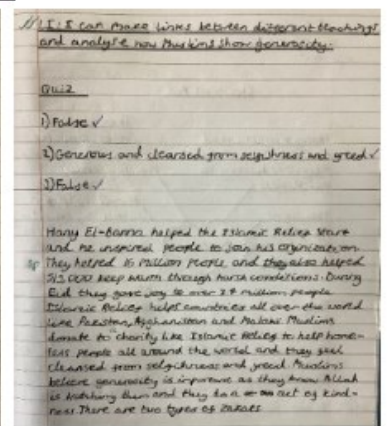 L.I: I can make links between different teachings
and analyse how Muslims show generosity.
Quiz
1) False ✓
2) Generous and cleansed from selfishness and greed ✓
3) False ✓
Hany El-Banna helped the Islamic Relief start
and he inspired people to join his organization
They helped 16 million people, and they also helped
keep warm through harsh conditions. During
Eid they gave joy to over million people
Islamic Relief helps countries all over the world
like Pakistan, Afghanistan and Muslims
donate to charity like Islamic Relief to help home-
less people all around the world and they feel
cleansed from selfishness and greed. Muslims
believe generosity is as they know Allah
is watching them and act of kind-
ness. There are two types of